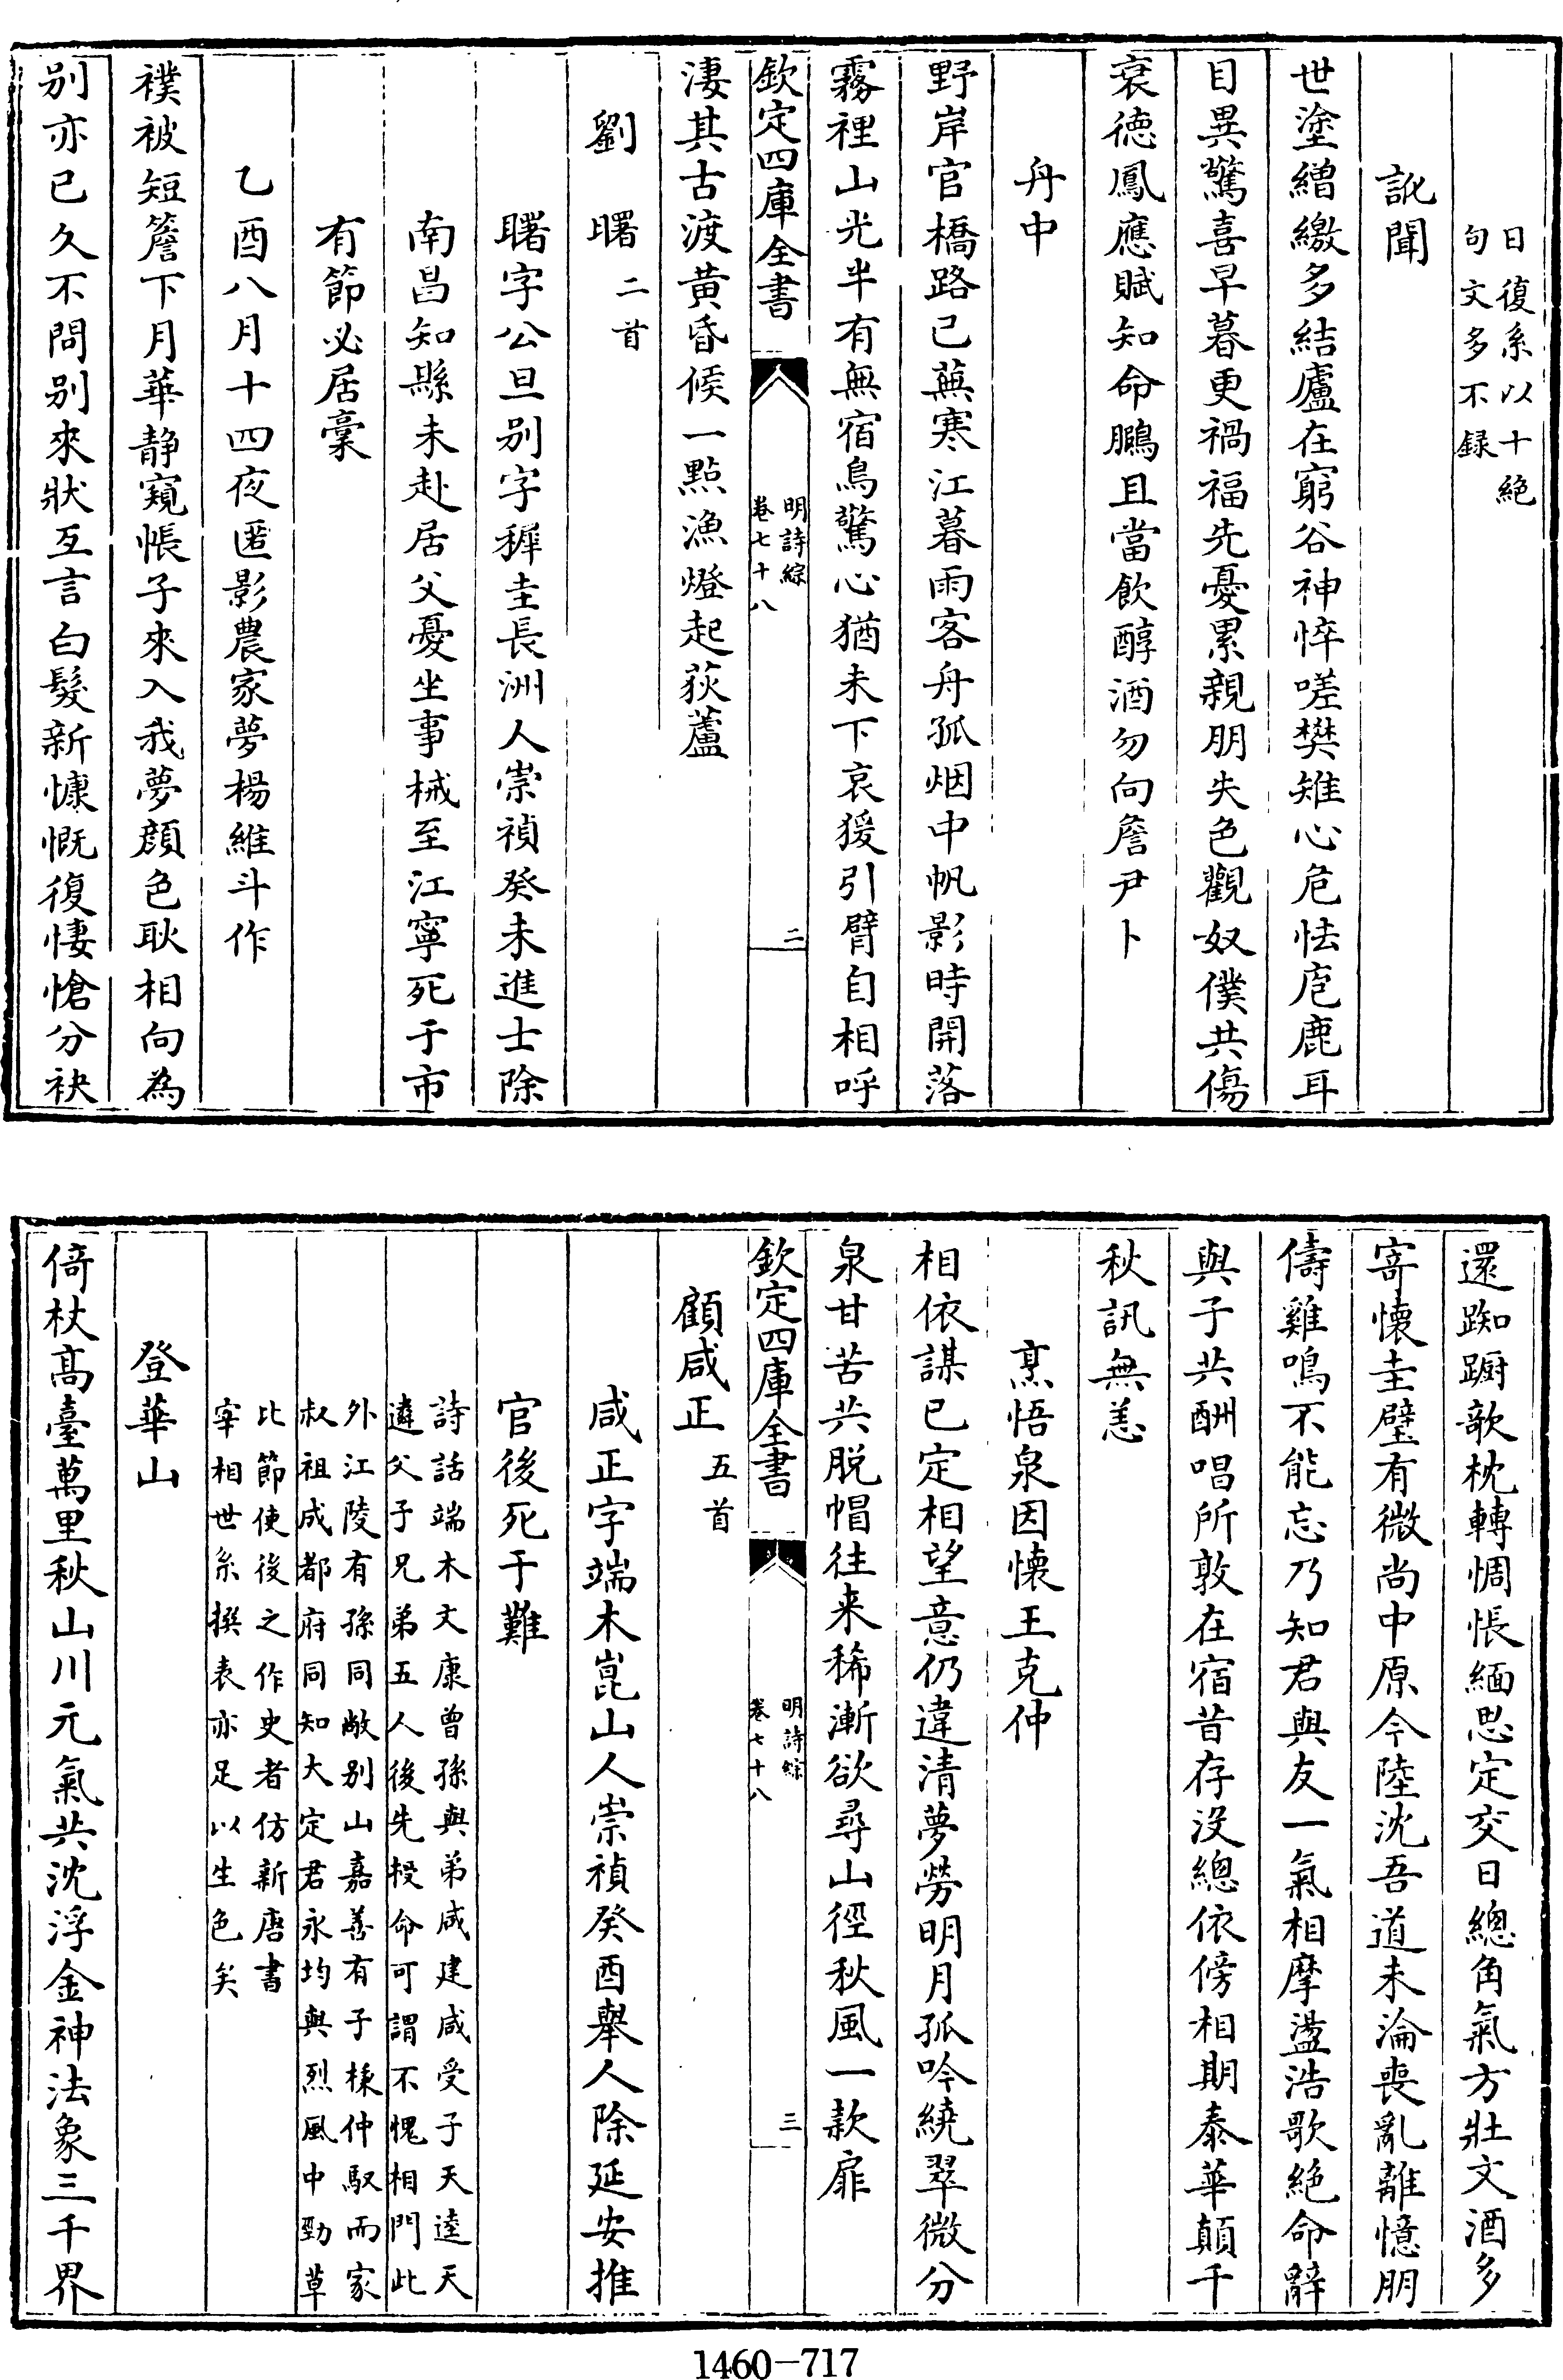 日復系以十絶
句文多不録
訛聞
世塗繒繳多結廬在窮谷神悴嗟樊雉心危怯庖鹿耳
目異驚喜早暮更禍福先憂累親朋失色觀奴僕共傷
衰德鳳應賦知命鵩且當飲醇酒勿向詹尹卜
舟中
野岸官橋路已蕪寒江暮雨客舟孤烟中帆影時開落
霧裡山光半有無宿鳥驚心猶未下哀猨引臂自相呼
欽定四庫全書
明詩綜
卷七十八
二
淒其古渡黄昏候一㸃漁燈起荻蘆
劉曙二首
曙字公旦别字穉圭長洲人崇禎癸未進士除
南昌知縣未赴居父憂坐事械至江寧死于市
有節必居稾
乙酉八月十四夜匿影農家夢楊維斗作
襆被短簷下月華静窺帳子來入我夢顔色耿相向為
别亦已久不問别來狀互言白髮新慷慨復悽愴分袂
還踟蹰欹枕轉惆悵緬思定交日總角氣方壯文酒多
寄懐圭璧有微尚中原今陸沈吾道未淪喪亂離憶朋
儔雞鳴不能忘乃知君與友一氣相摩盪浩歌絶命辭
與子共酬唱所敦在宿昔存没總依傍相期泰華顛千
秋訊無恙
烹悟泉因懐王克仲
相依謀已定相望意仍違清夢勞明月孤吟繞翠微分
泉甘苦共脱帽往来稀漸欲尋山徑秋風一款扉
欽定四庫全書
明詩綜
卷七十八
三
顧咸正五首
咸正字端木崑山人崇禎癸酉舉人除延安推
官後死于難
詩話端木文康曾孫與弟咸建咸受子天逵天
遴父子兄弟五人後先授命可謂不愧相門此
外江陵有孫同敞别山嘉善有子棅仲馭而家
叔祖成都府同知大定君永均與烈風中勁草
比節使後之作史者仿新唐書
宰相世系撰表亦足以生色矣
登華山
倚杖髙臺萬里秋山川元氣共沈浮金神法象三千界
1460-717